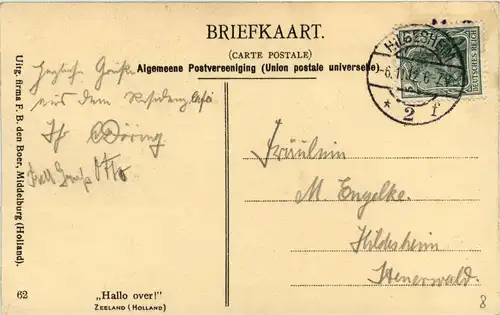 BRIEFKAART.
(CARTE POSTALE)
Algemeene Postvereeniging (Union postale universelle)
HILDESHEIM
6.11.12.6-7
* 2 f
DEUTSCHES REICH
Uitg. firma F. B. den Boer, Middelburg (Holland).
Herzliche Grüße
aus dem Residenz Café
Ihr Döring
Gruß Otto
Fräulein
M. Engelke.
Hildesheim
Steuerwald.
62
„Hallo over!"
ZEELAND (HOLLAND)
8